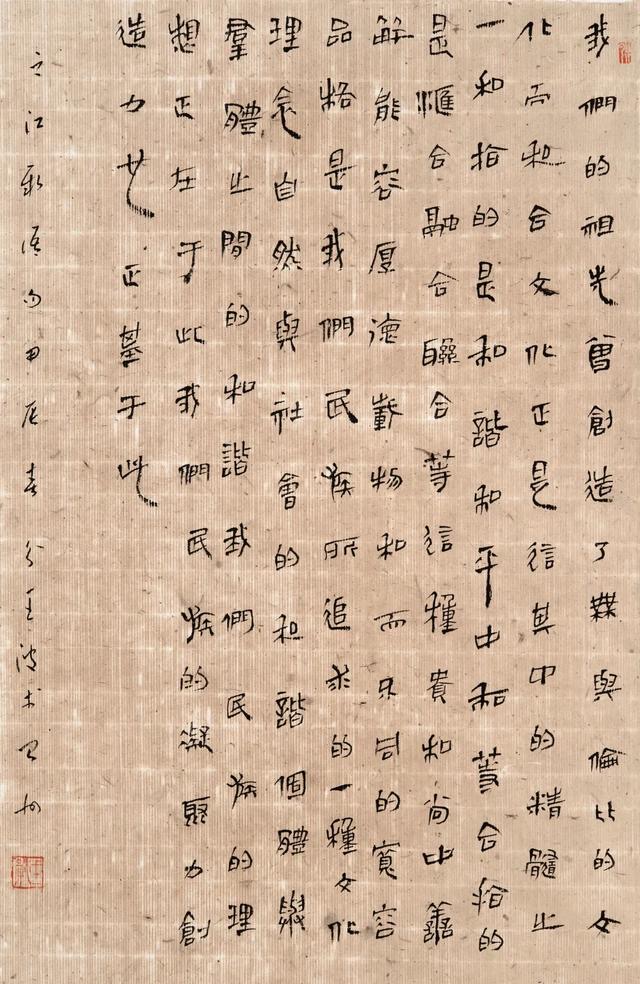 我們的祖先曾創造了無與倫比的文
化而和合文化正是這其中的精髓之
一和指的是和諧和平中和等合指的
是匯合融合聯合等這種貴和尚中善
解能容厚德載物和而不同的寬容
品格是我們民族所追求的一種文化
理念自然與社會的和諧個體與
羣體之間的和諧我們民族的理
想正在于此我們民族的凝聚力創
造力也正基于此
之江新语句甲辰春分王波